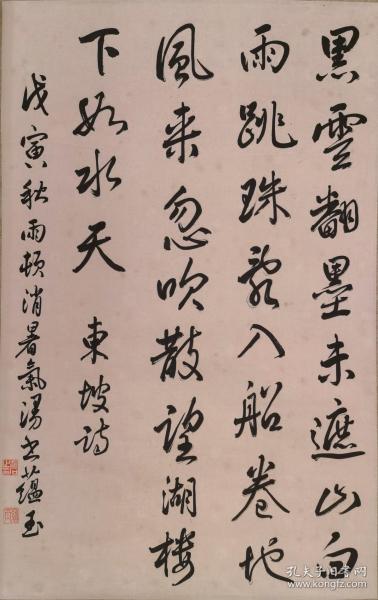 黑雲翻墨未遮山白
雨跳珠亂入船卷地
風来忽吹散望湖樓
下如水天 東坡詩
戊寅秋雨頓消暑氣湯書蘊玉
孔夫子旧书网
www.kongfz.com